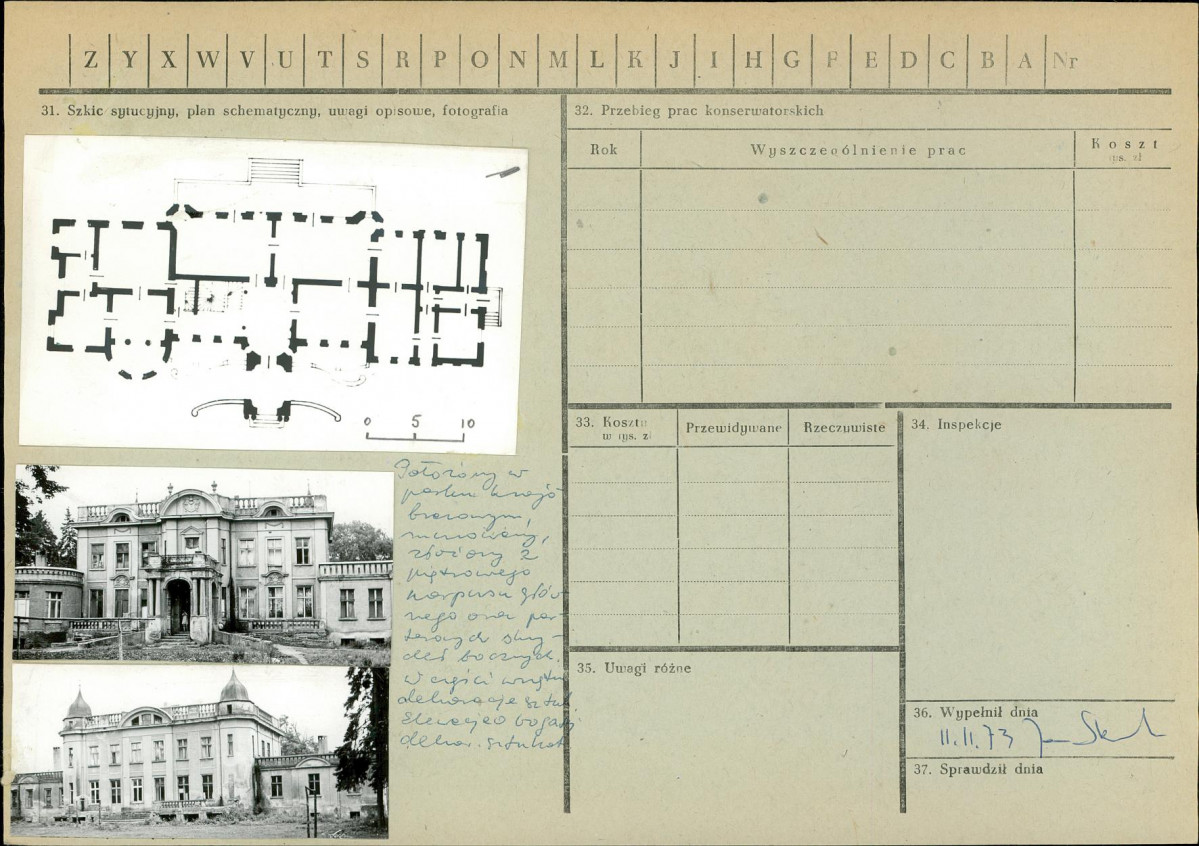 Z Y X W V U T S R P O N M L K J I H G F E D C B A Nr
31. Szkic sytucyjny, plan schematyczny, uwagi opisowe, fotografia
0 5 10
Położony w
parku krajo
brazowym,
murowany,
złożony z
piętrowego
korpusu głów
nego oraz par
terowych skrzy-
deł bocznych.
W części wnętrz
dekoracje sztuk.
Elewacje o bogatej
dekor. sztukat.
32. Przebieg prac konserwatorskich
Rok Wyszczególnienie prac Koszt
tys. zł
33. Koszty
w tys. zł
Przewidywane Rzeczywiste
34. Inspekcje
35. Uwagi różne
36. Wypełnił dnia
11.11.73
37. Sprawdził dnia